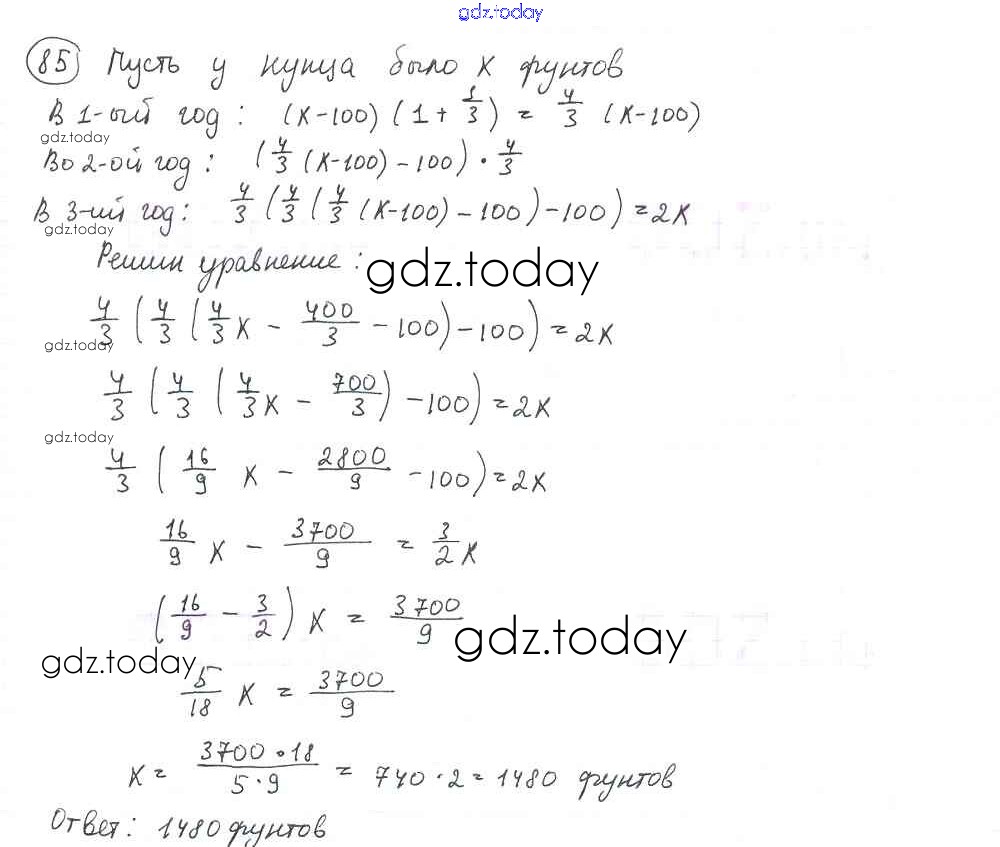 gdz.today
85 Пусть у купца было x фунтов
В 1-ый год: (x-100)(1+1/3) = 4/3 (x-100)
gdz.today
Во 2-ой год: (4/3 (x-100) - 100) · 4/3
В 3-ий год: 4/3 (4/3 (4/3 (x-100) - 100) - 100) = 2x
gdz.today
Решим уравнение:
gdz.today
4/3 (4/3 (4/3 x - 400/3 - 100) - 100) = 2x
gdz.today
4/3 (4/3 (4/3 x - 700/3) - 100) = 2x
gdz.today
4/3 (16/9 x - 2800/9 - 100) = 2x
16/9 x - 3700/9 = 3/2 x
(16/9 - 3/2) x = 3700/9
gdz.today
gdz.today
5/18 x = 3700/9
x = 3700·18/5·9 = 740·2 = 1480 фунтов
Ответ: 1480 фунтов